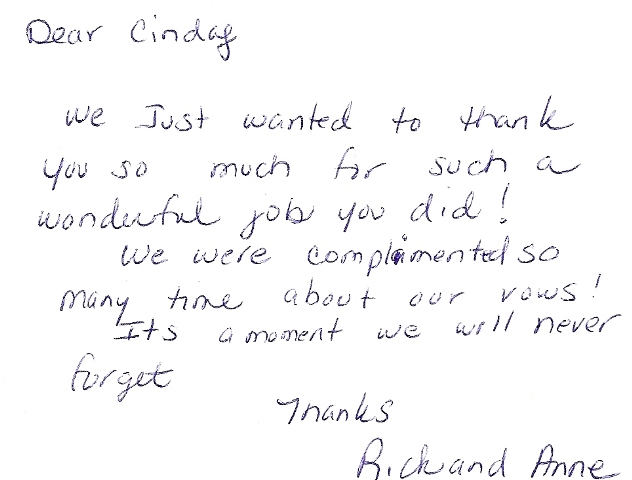 Dear Cinday
We Just wanted to thank
you so much for such a
wonderful job you did!
We were complimented so
many time about our vows!
Its a moment we will never
forget
Thanks
Rick and Anne